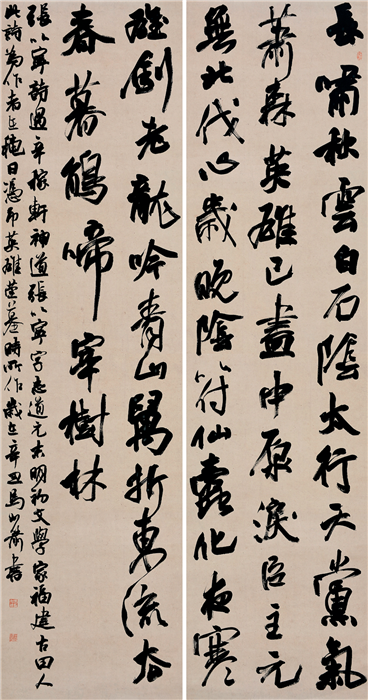 長嘯秋雲白石陰太行天黨氣
蕭森英雄已盡中原淚臣主元
無北伐心歲晚陰符仙蠹化夜寒
雄劍老龍吟青山萬折東流去
春暮鵑啼宰樹林
張以寧詩過辛稼軒神道張以寧字志道元末明初文學家福建古田人
此詩為作者在晚日憑吊英雄墓時所作歲在辛丑馬山書